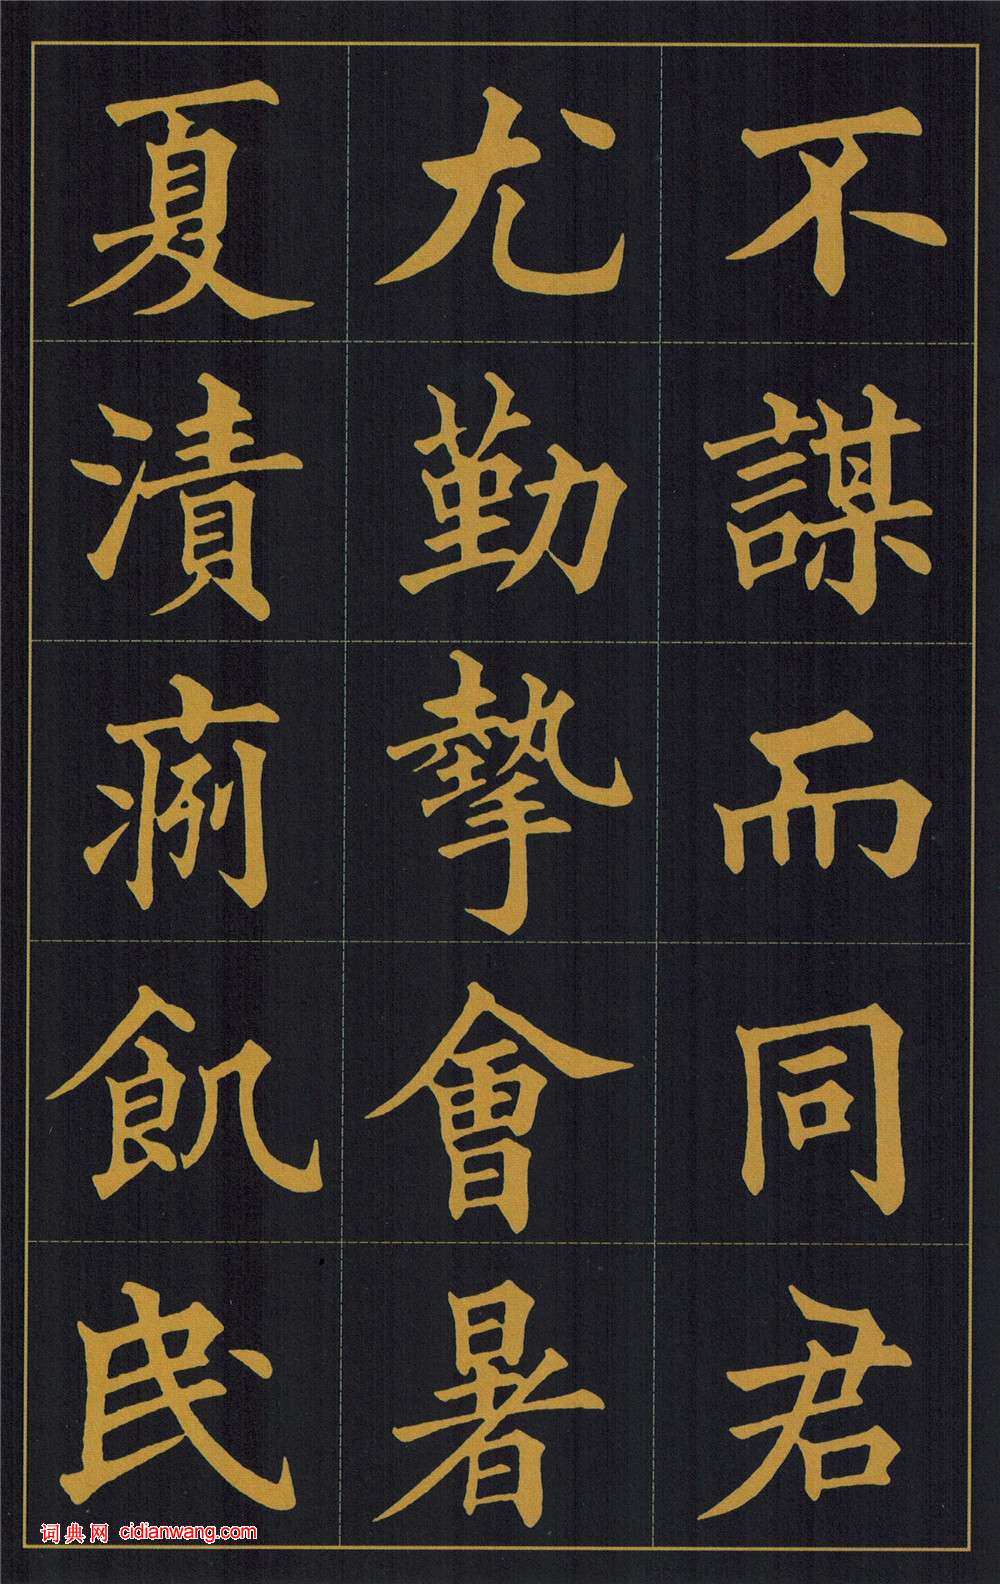 不謀而同君
尤勤摯會暑
夏漬痢飢民
词典网 cidianwang.com